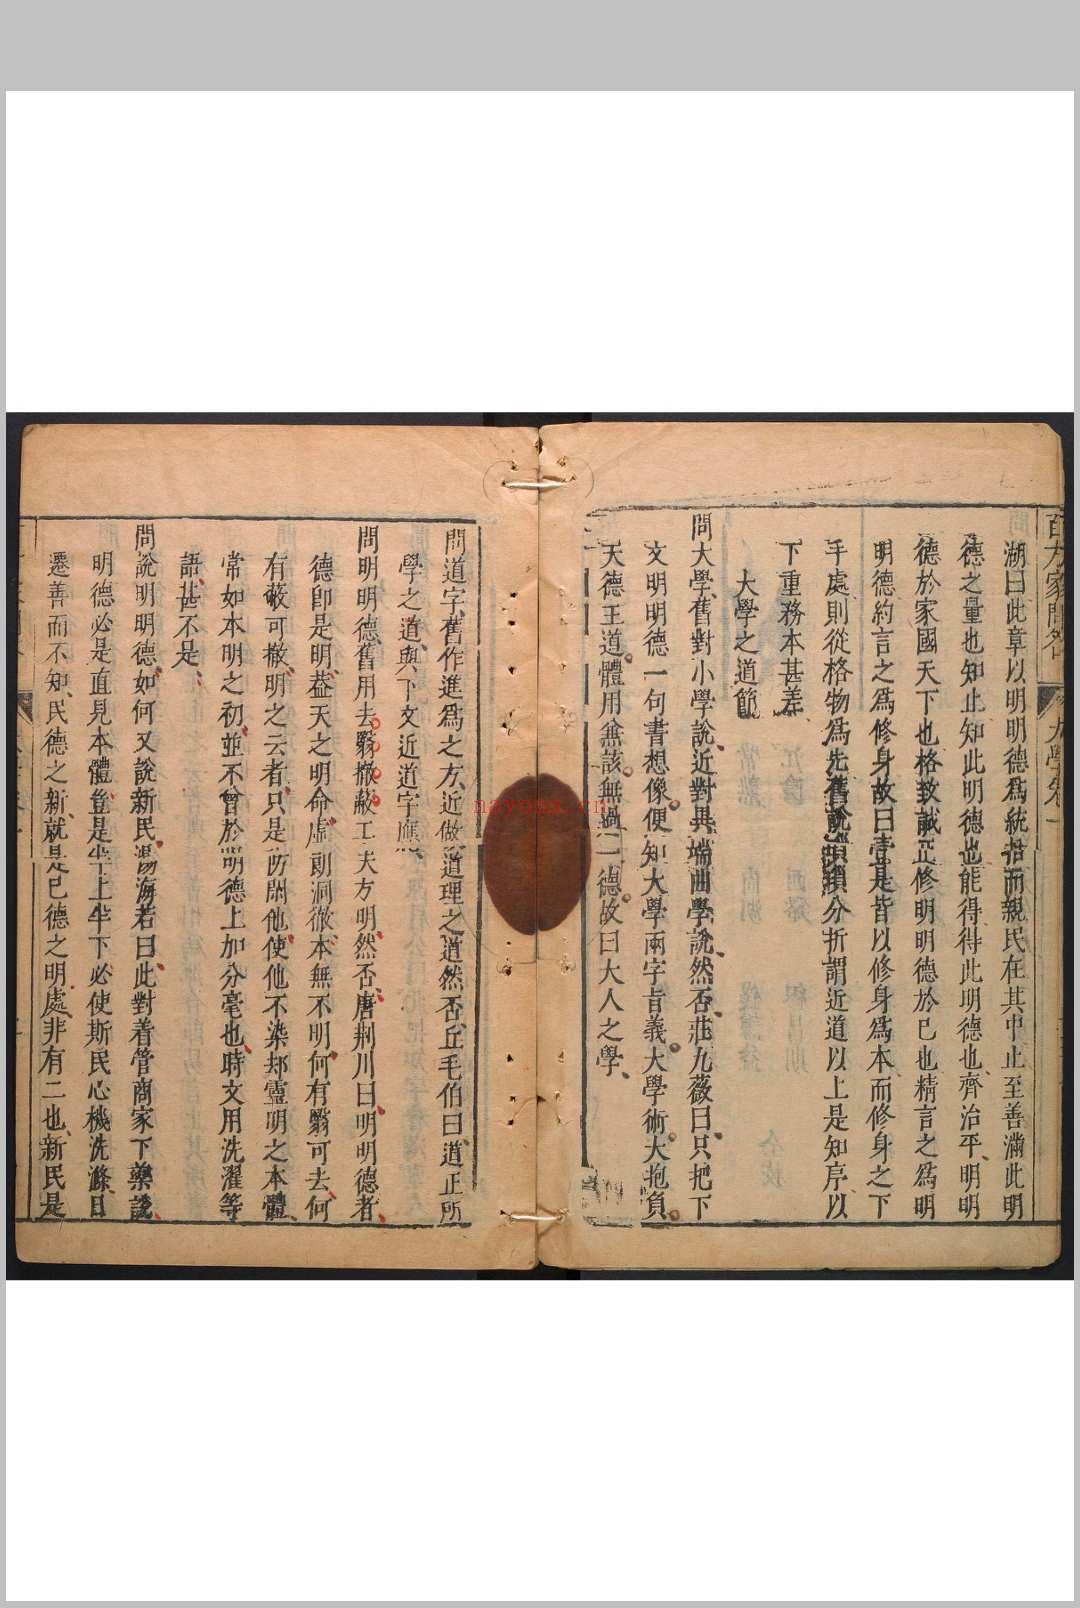 湖曰此章以明明德爲統括而親民在其中止至善滿此明
德之量也知止知此明德也能得得此明德也齊治平明明
德於家國天下也格致誠正修明明德於己也精言之爲明
明德約言之爲修身故曰壹是皆以修身爲本而修身之下
手處則從格物爲先舊說瑣瑣分折謂近道以上是知序以
下重務本甚差
大學之道節
問大學舊對小學說近對異端曲學說然否莊九薇曰只把下
文明明德一句書想像便知大學兩字旨義大學術大抱負
天德王道體用兼該無過一德故曰大人之學
問道字舊作進爲之方近做道理之道然否丘毛伯曰道正所
學之道與下文近道字應
問明明德舊用去翳撤蔽工夫方明然否唐荆川曰明明德者
德卽是明葢天之明命虛朗洞徹本無不明何有翳可去何
有蔽可撤明之云者只是防閑他使他不染却靈明之本體
常如本明之初並不曾於明德上加分毫也時文用洗濯等
語甚不是
問說明明德如何又說新民湯海若曰此對着管商家下藥說
明德必是直見本體豈是半上半下必使斯民心機洗滌日
遷善而不知民德之新就是己德之明處非有二也新民是
百方家問答
大學卷一
nayona.cn